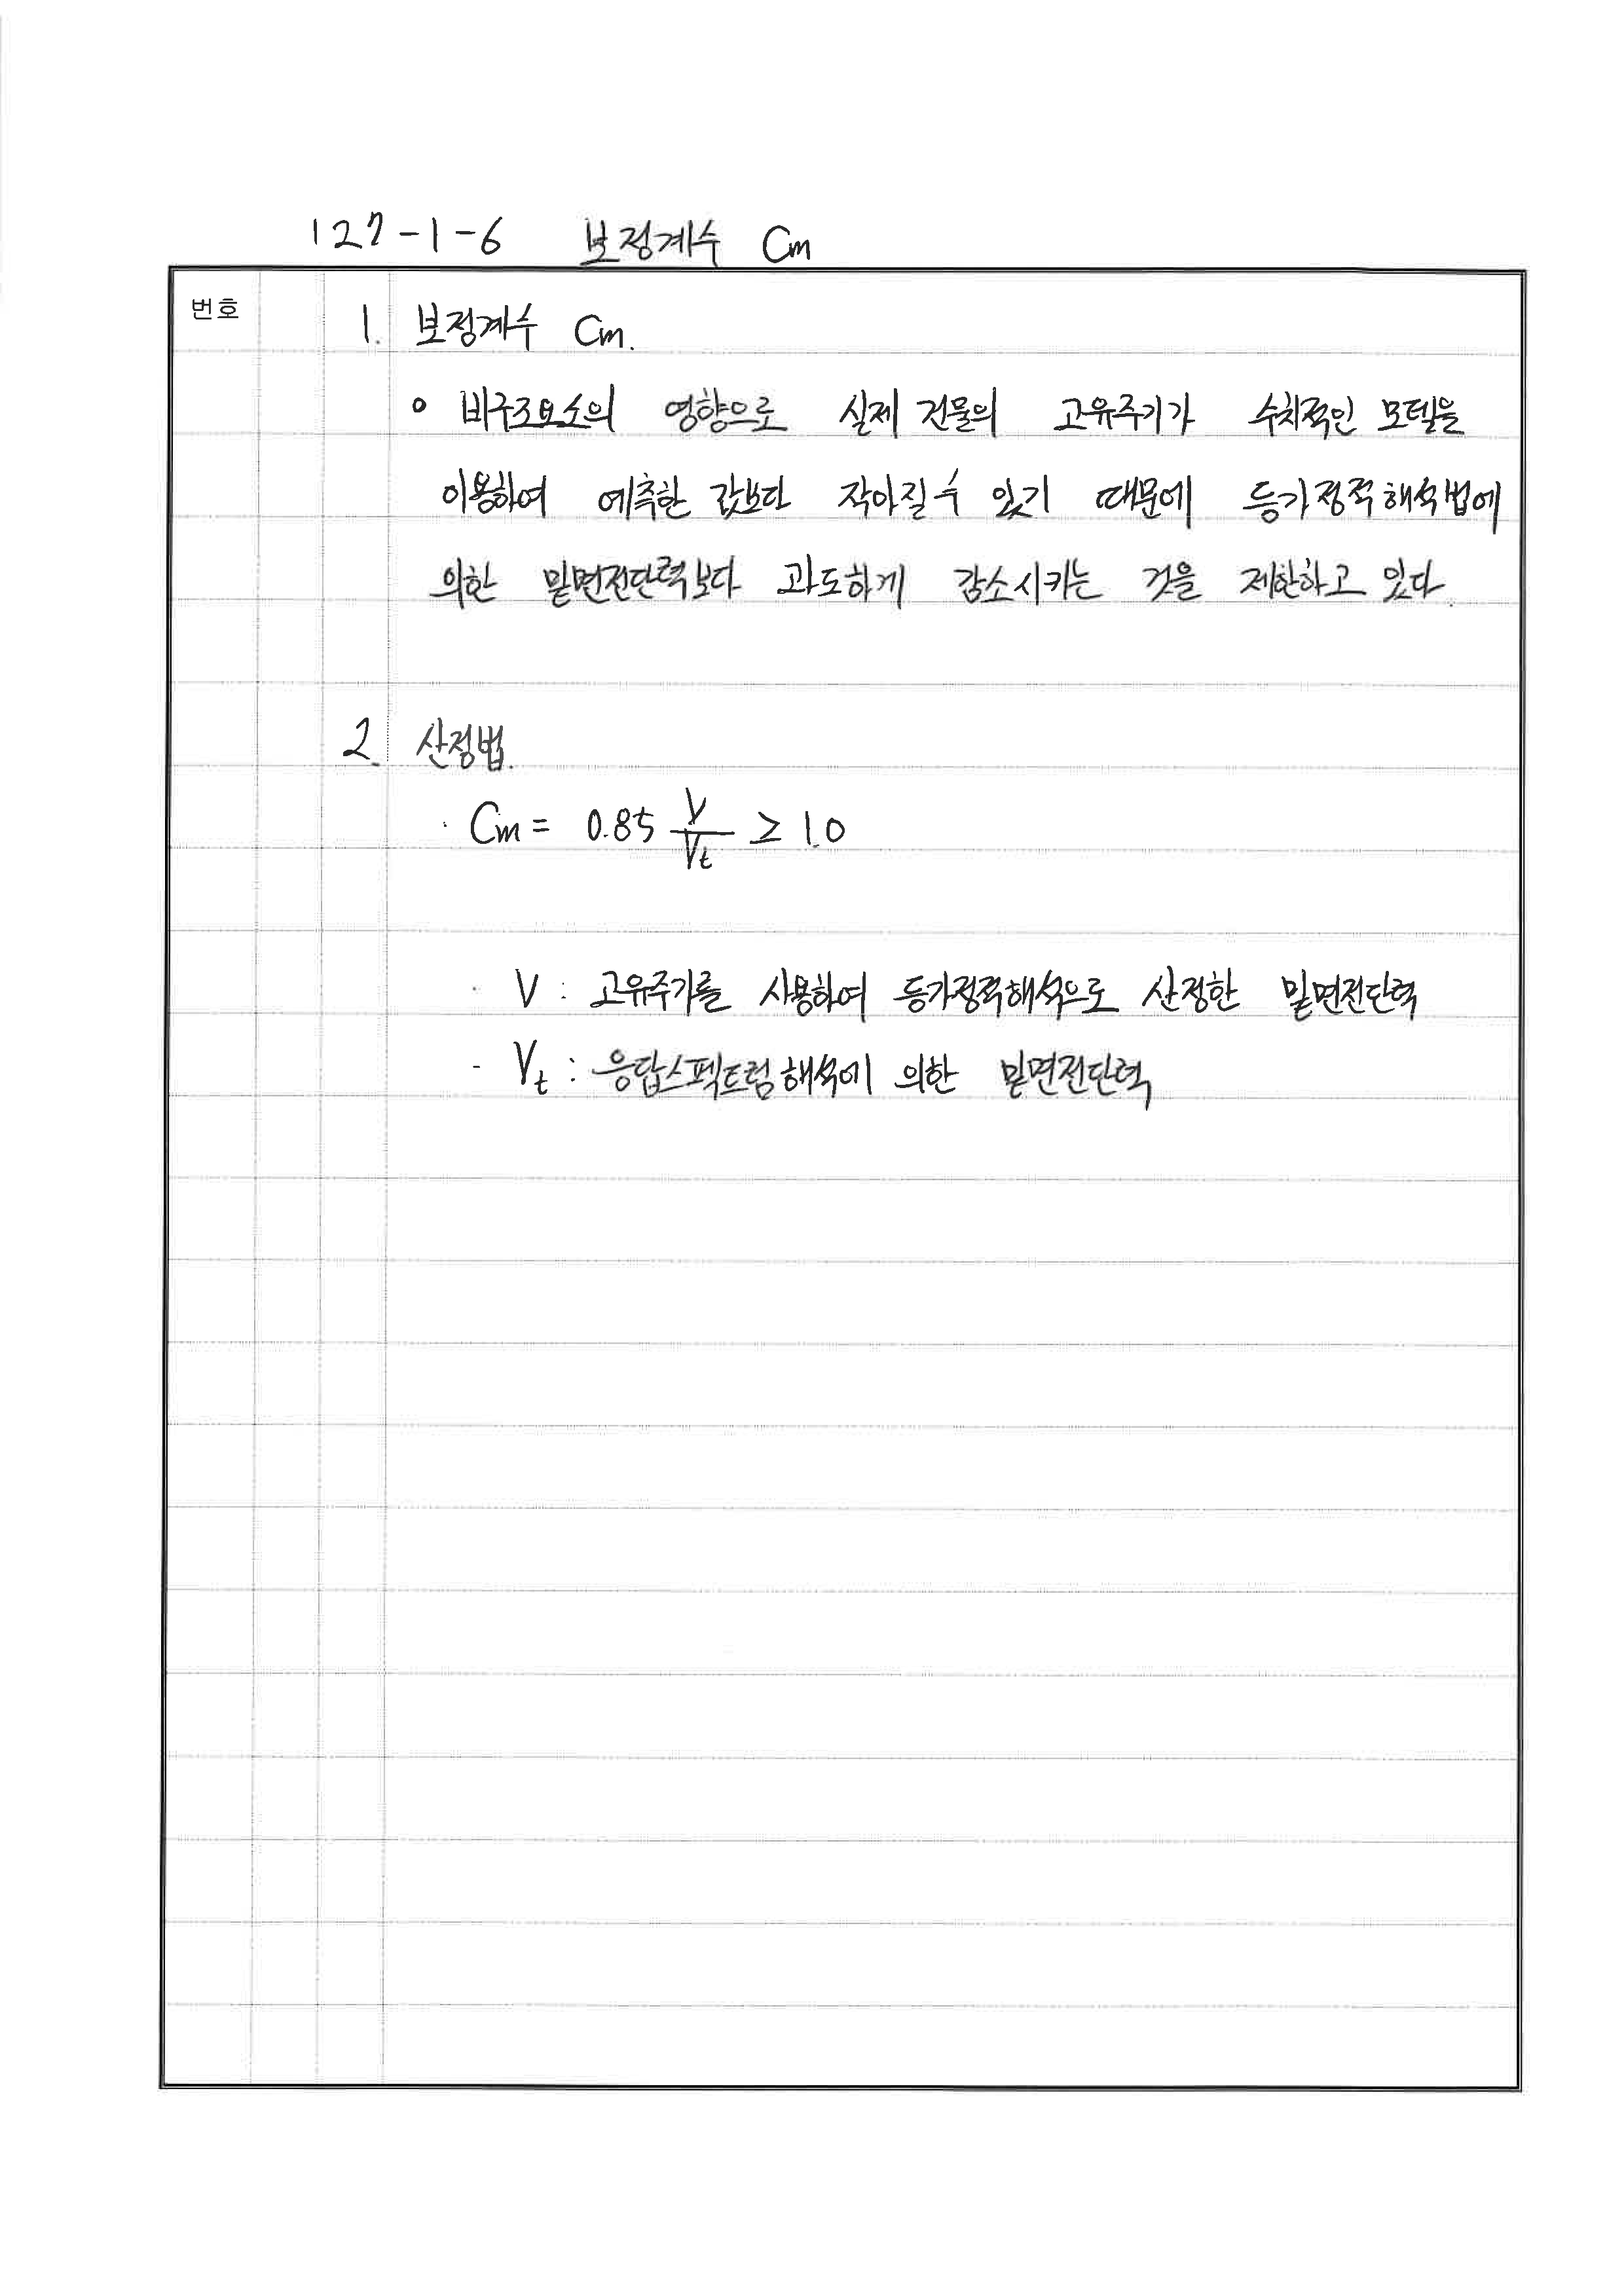 127-1-6 보정계수 Cm
번호
1. 보정계수 Cm.
∘ 비구조요소의 영향으로 실제 건물의 고유주기가 수치적인 모델을
이용하여 예측한 값보다 작아질 수 있기 때문에 등가정적해석법에
의한 밑면전단력보다 과도하게 감소시키는 것을 제한하고 있다.
2. 산정법.
· Cm = 0.85 V/Vt ≥ 1.0
· V : 고유주기를 사용하여 등가정적해석으로 산정한 밑면전단력
- Vt : 응답스펙트럼해석에 의한 밑면전단력